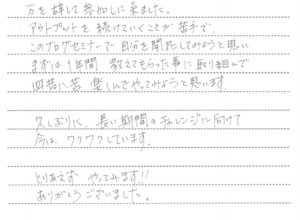 万を辞して参加しに来ました。
アウトプットを続けていくことが苦手で、
このブログセミナーで自分を開花してみようと思い
まずは1年間 教えてもらった事に取り組んで
四苦八苦 楽しんでやってみようと思います。
久しぶりに、長い期間のチャレンジに向けて
今は、ワクワクしています。
とりあえず やってみます!!
ありがとうございました。